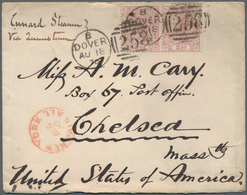 Cunard Steamer
Via Queenstown
B
DOVER
AU 18
79
258
258
Miss A. M. Cary.
Box 67. Post Office.
Chelsea
Mass tts
United States of America
NEW YORK
ALL